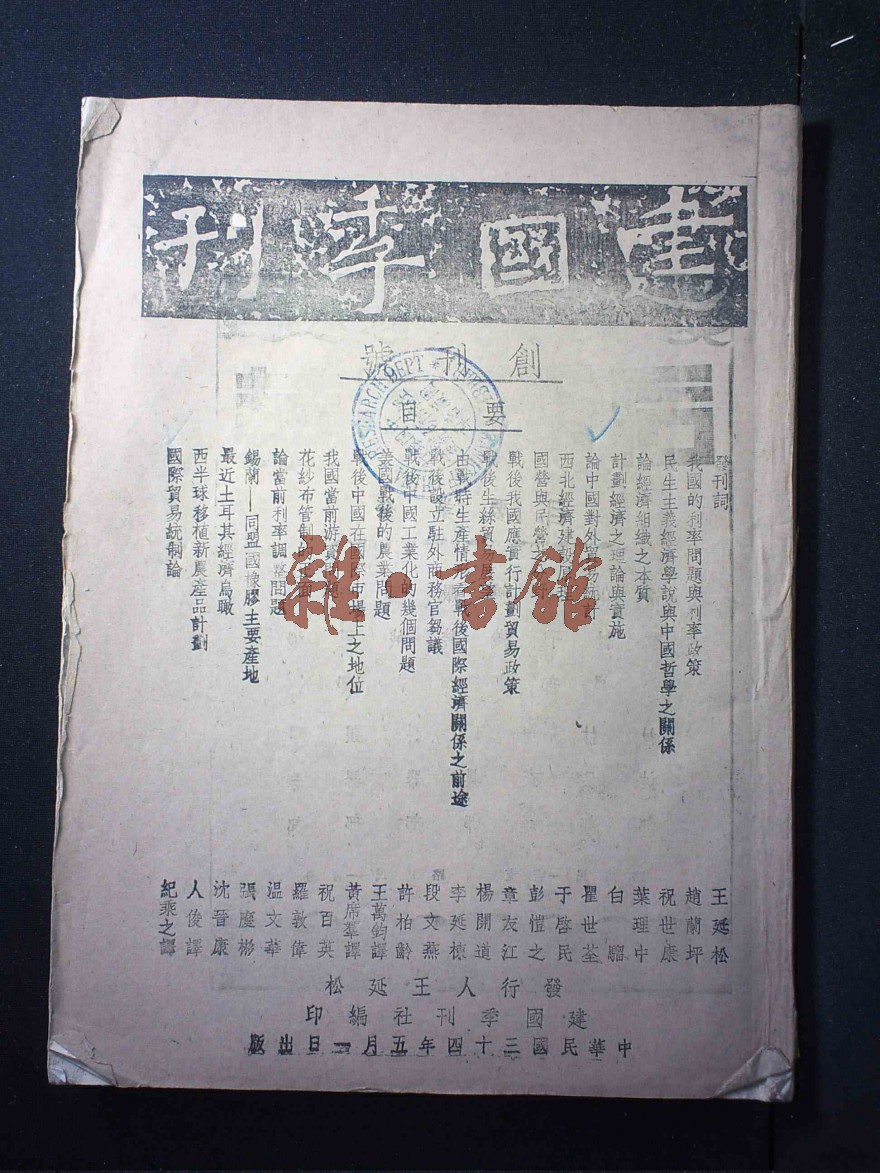 建國季刊
創刊號
要目
發刊詞
我國的利率問題與利率政策
民生主義經濟學說與中國哲學之關係
論經濟組織之本質
計劃經濟之理論與實施
論中國對外貿易統計
西北經濟建設
國營與民營
戰後我國應實行計劃貿易政策
戰後生絲貿易展望
由戰時生產情形看戰後國際經濟關係之前途
戰後設立駐外商務官芻議
戰後中國工業化的幾個問題
美國戰後的農業問題
戰後中國在國際市場上之地位
我國當前游資問題
花紗布管制的
論當前利率調整問題
錫蘭——同盟國橡膠主要產地
最近土耳其經濟鳥瞰
西半球移植新農產品計劃
國際貿易統制論
王延松
趙蘭坪
祝世康
葉理中
白騮
瞿世荃
于啓民
彭愷之
章友江
楊開道
李延樑
段文燕
許柏齡
王萬鈞譯
黃席羣譯
祝百英
羅敦偉
温文華
張慶彬
沈晉康
人俊譯
紀乘之譯
發行人王延松
建國季刊社編印
中華民國三十四年五月一日出版
RESEARCH DEPT
雜·書館